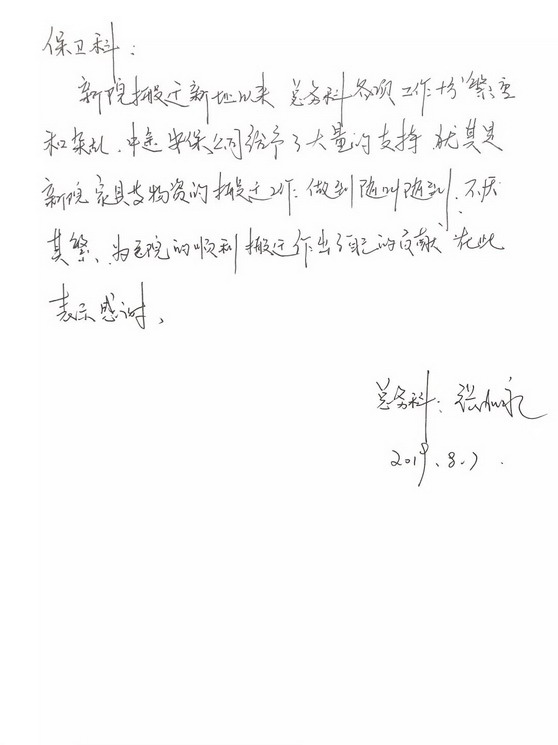 保卫科：
新院搬迁新址以来 总务科各项工作十分繁重
和杂乱．中途安保公司给予了大量的支持 尤其是
新院家具及物资的搬迁工作．做到随叫随到．不厌
其繁、为医院的顺利搬迁作出了自己的贡献 在此
表示感谢，
总务科：张
2019.8.7.